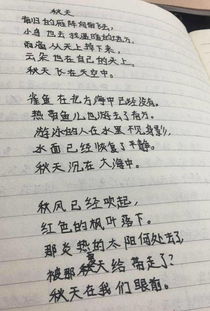 秋天
南归的雁阵向南飞去，
小鸟也去找温暖的地方。
雨滴从天上掉下来，
云朵也在自己的天上。
秋天飞在天空中。
雀鱼在北方海中已经没有。
热带鱼儿也游去了南方。
游泳的人在水里不见身影，
水面已经恢复了平静。
秋天沉在大海中。
秋风已经吹起，
红色的枫叶落下。
那炎热的太阳何处去了，
被那秋天给带走了？
秋天在我们眼前。